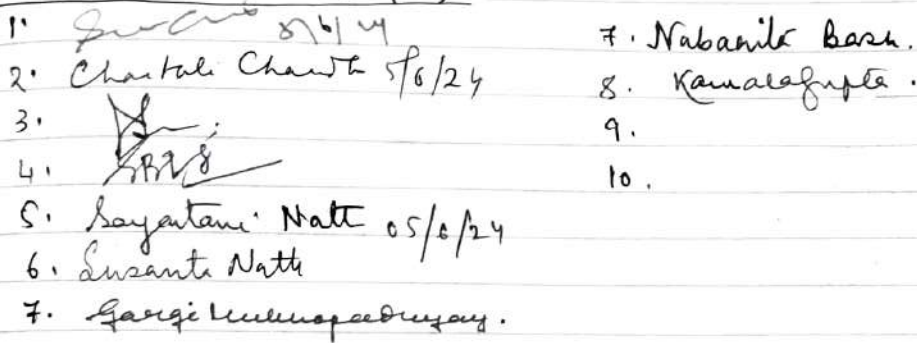 1. 5/6/24
2. Chaitali Chandh 5/6/24
3.
4.
5. Sayantani Nath 05/6/24
6. Susanta Nath
7. Gargi Mukhopadhyay.
7. Nabanita Basu.
8. Kamala Gupta.
9.
10.